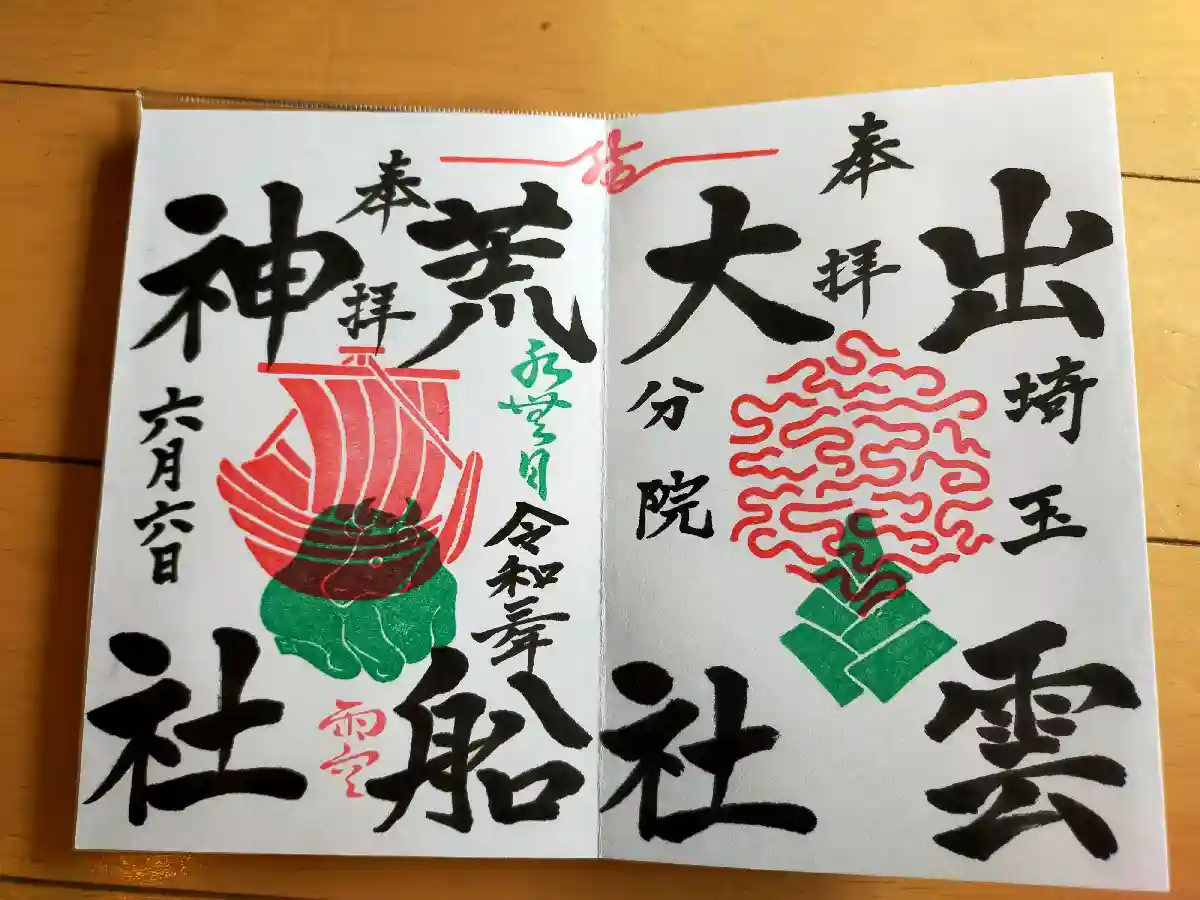 奉拝
出雲
大社
埼玉
分院
奉拝
荒船
神社
水無月
令和三年
六月六日
雨空